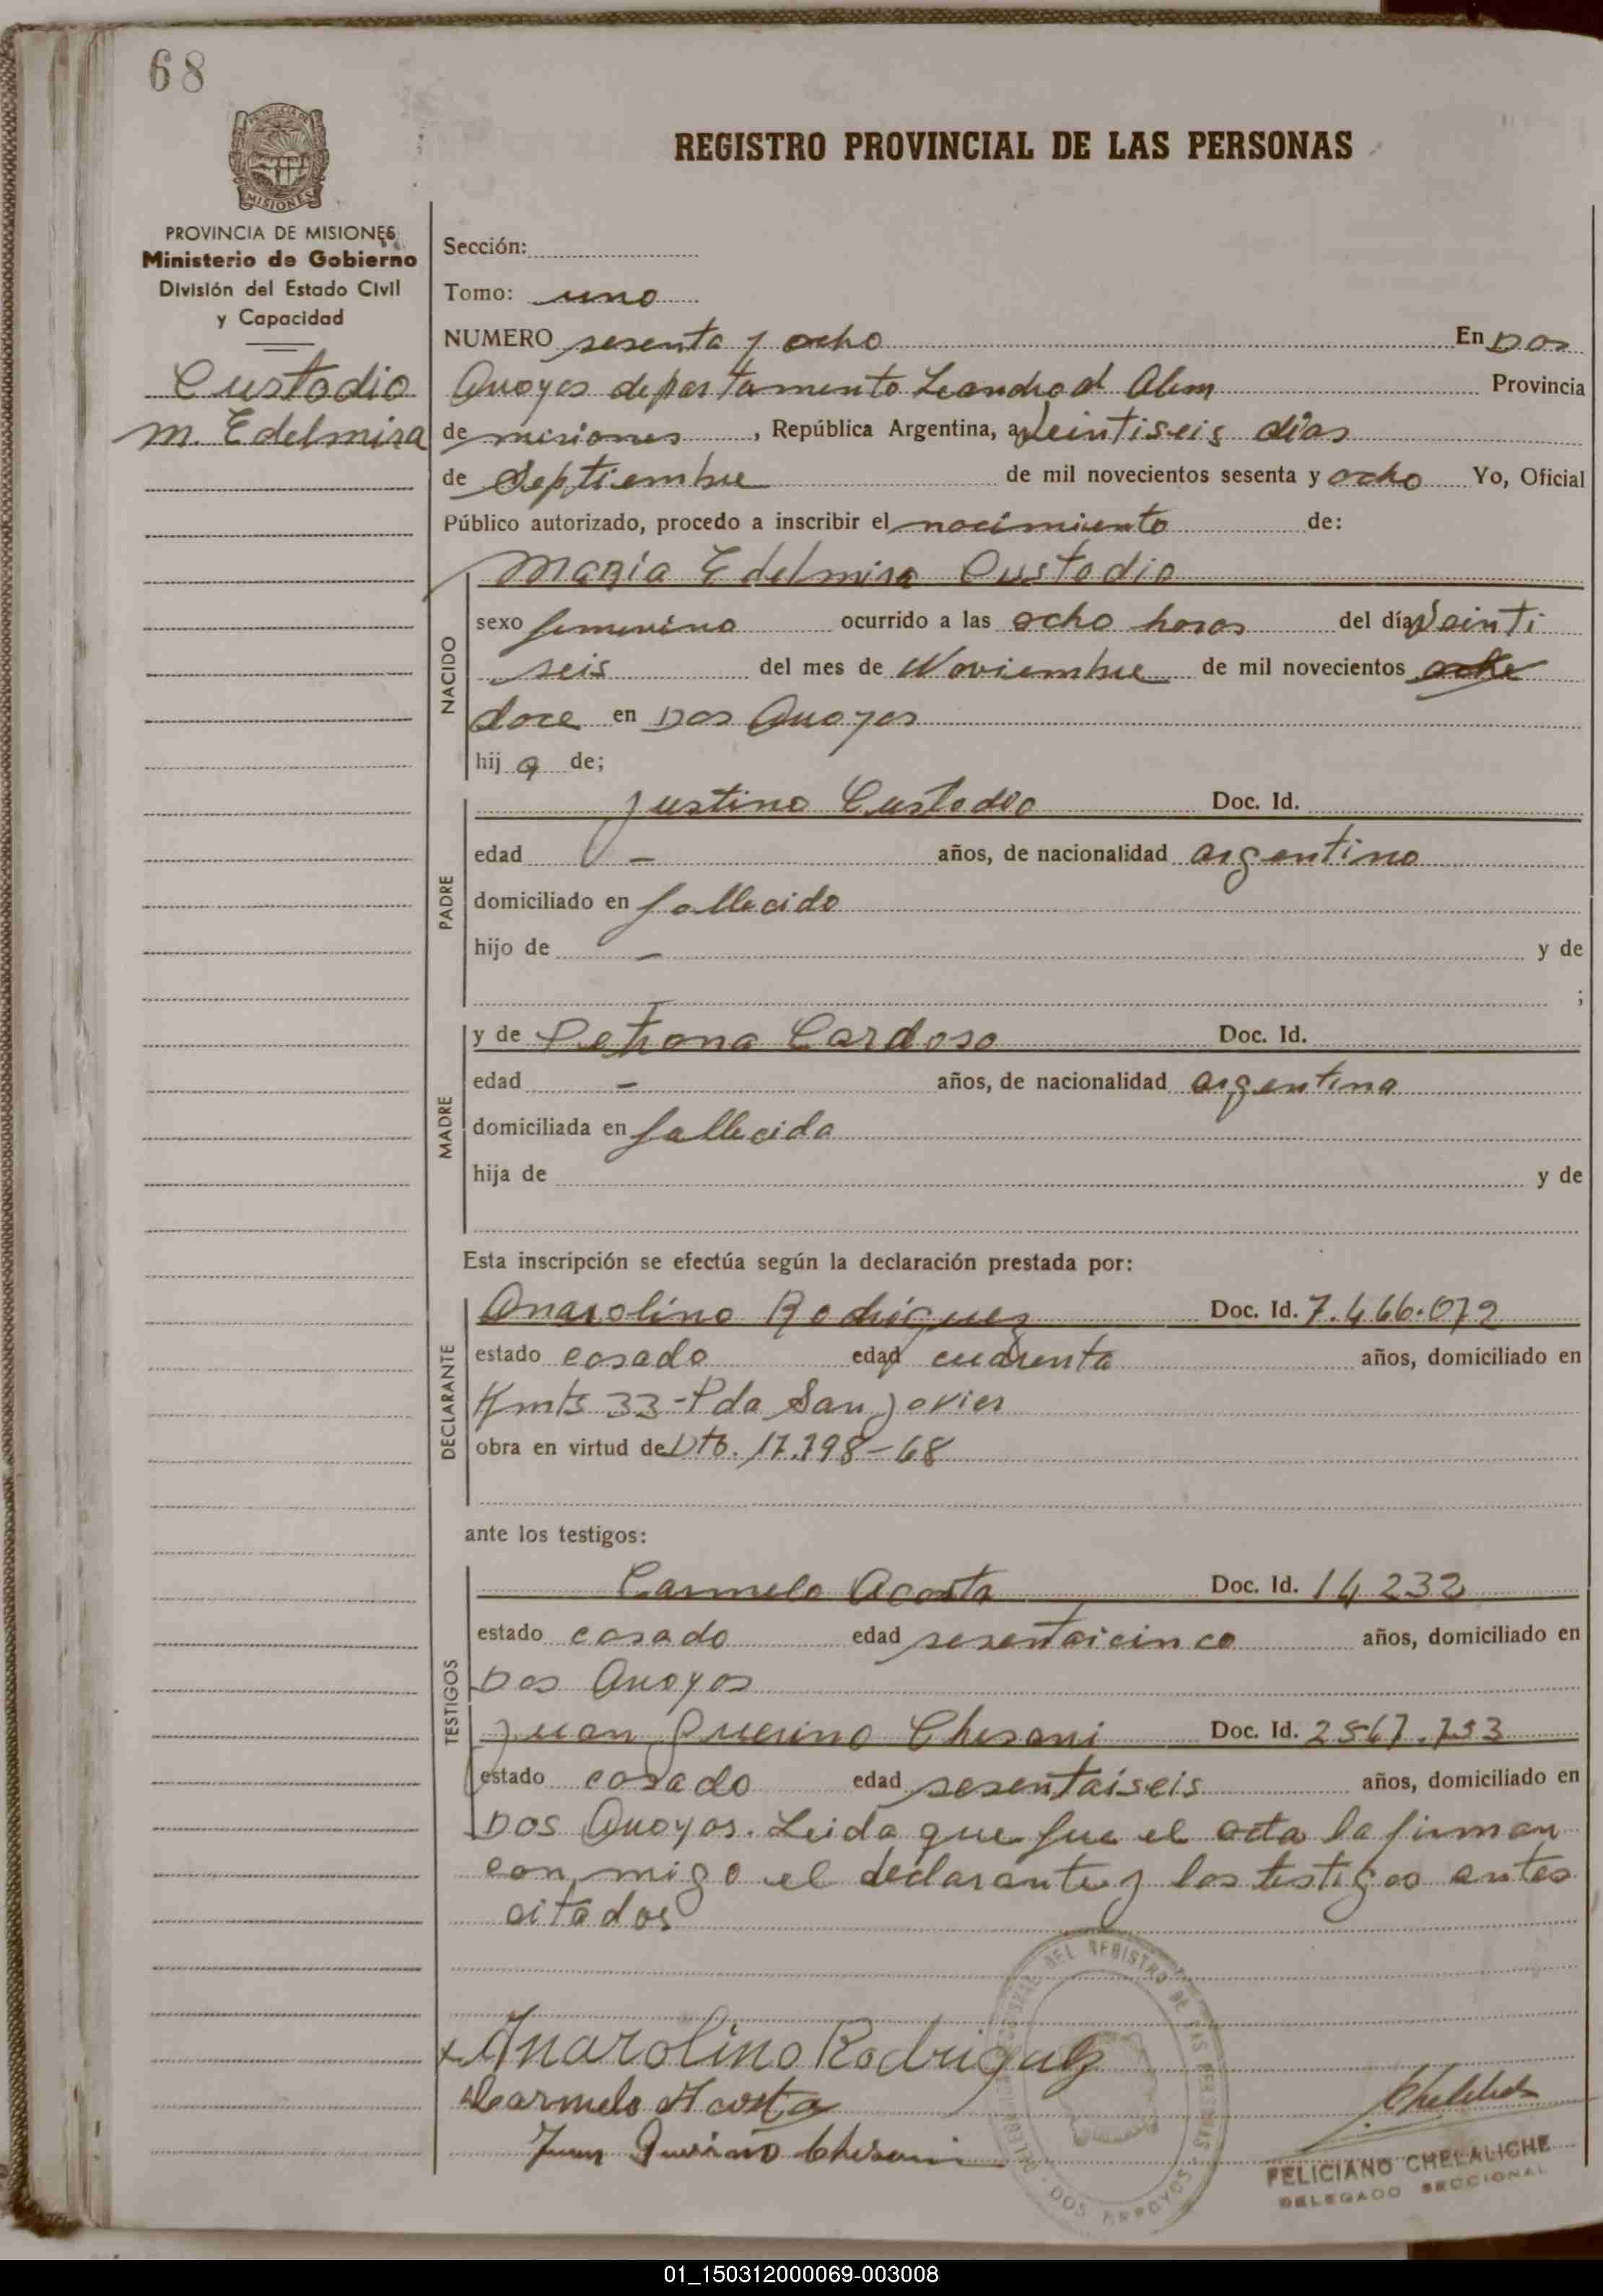 68
MISIONES
REGISTRO PROVINCIAL DE LAS PERSONAS
PROVINCIA DE MISIONES
Ministerio de Gobierno
División del Estado Civil
y Capacidad
Custodio
M. Edelmira
Sección:
Tomo: uno
NUMERO sesenta y ocho En Dos
Arroyos departamento Leandro N Alem Provincia
de misiones, República Argentina, a veintiseis dias
de Septiembre de mil novecientos sesenta y ocho Yo, Oficial
Público autorizado, procedo a inscribir el nacimiento de:
María Edelmira Custodio
NACIDO
sexo femenino ocurrido a las ocho horas del día veinti
seis del mes de Noviembre de mil novecientos
doce en Dos Arroyos
hij a de;
PADRE
Justino Custodio Doc. Id.
edad - años, de nacionalidad argentino
domiciliado en fallecido
hijo de - y de
;
MADRE
y de Petrona Cardoso Doc. Id.
edad - años, de nacionalidad argentina
domiciliada en fallecida
hija de y de
Esta inscripción se efectúa según la declaración prestada por:
DECLARANTE
Anarolino Rodriguez Doc. Id. 7.466.079
estado casado edad cuarenta años, domiciliado en
Kmts 33 - Pda San Javier
obra en virtud de Dto. 17.798-68
ante los testigos:
TESTIGOS
Carmelo Acosta Doc. Id. 14 232
estado casado edad sesentaicinco años, domiciliado en
Dos Arroyos
Juan Querino Chesani Doc. Id. 2567.753
estado casado edad sesentaíseis años, domiciliado en
Dos Arroyos. Leida que fue el acta la firman
con migo el declarante y los testigos antes
citados
x Anarolino Rodriguez
Carmelo Acosta
Juan Querino Chesani
DEL REGISTRO DE LAS PERSONAS
DOS ARROYOS
FELICIANO CHELALICHE
DELEGADO SECCIONAL
01_150312000069-003008